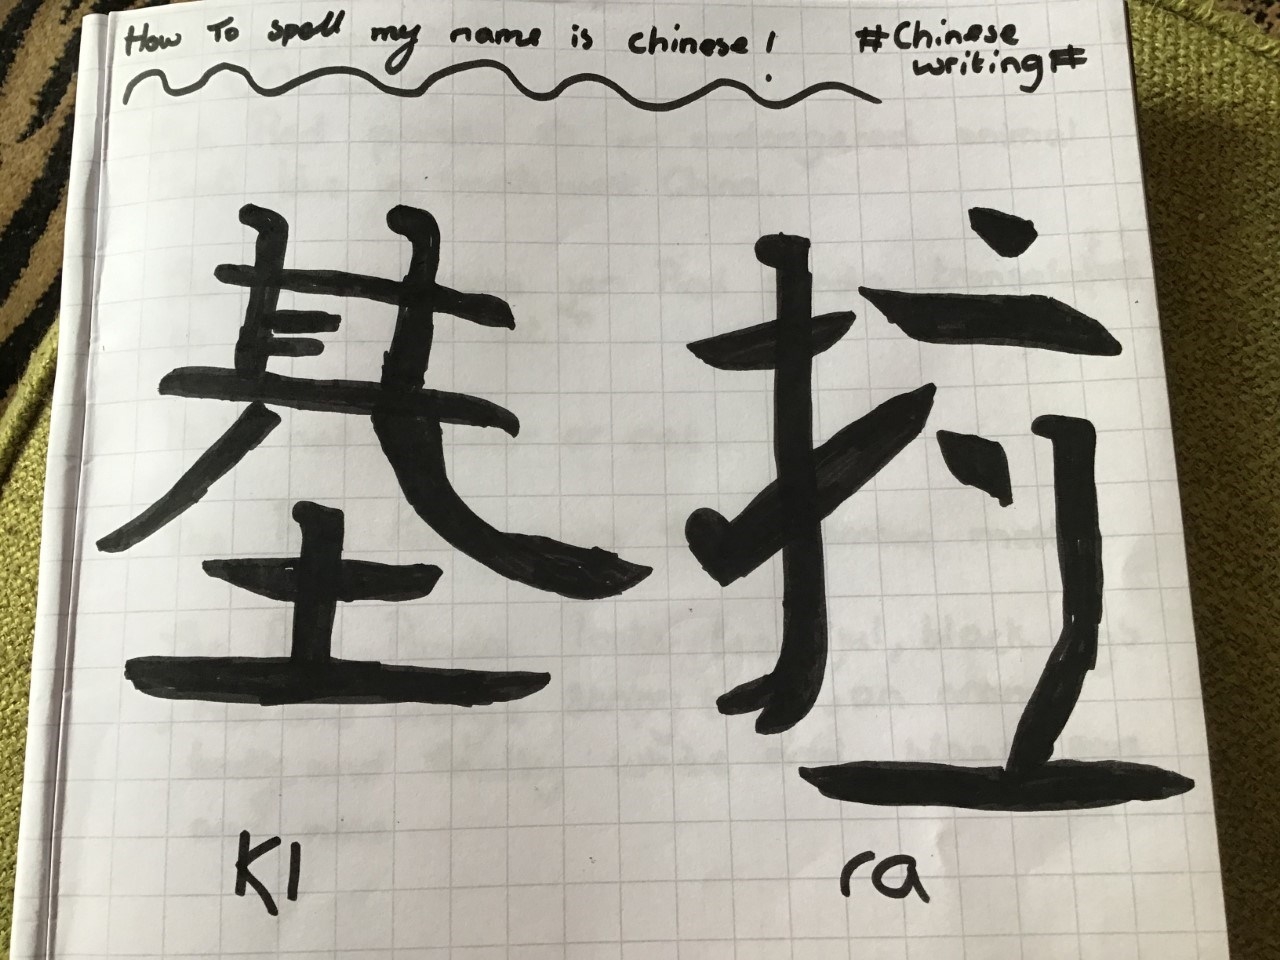 How To spell my name is chinese!
#Chinese writing#
基拉
KI ra